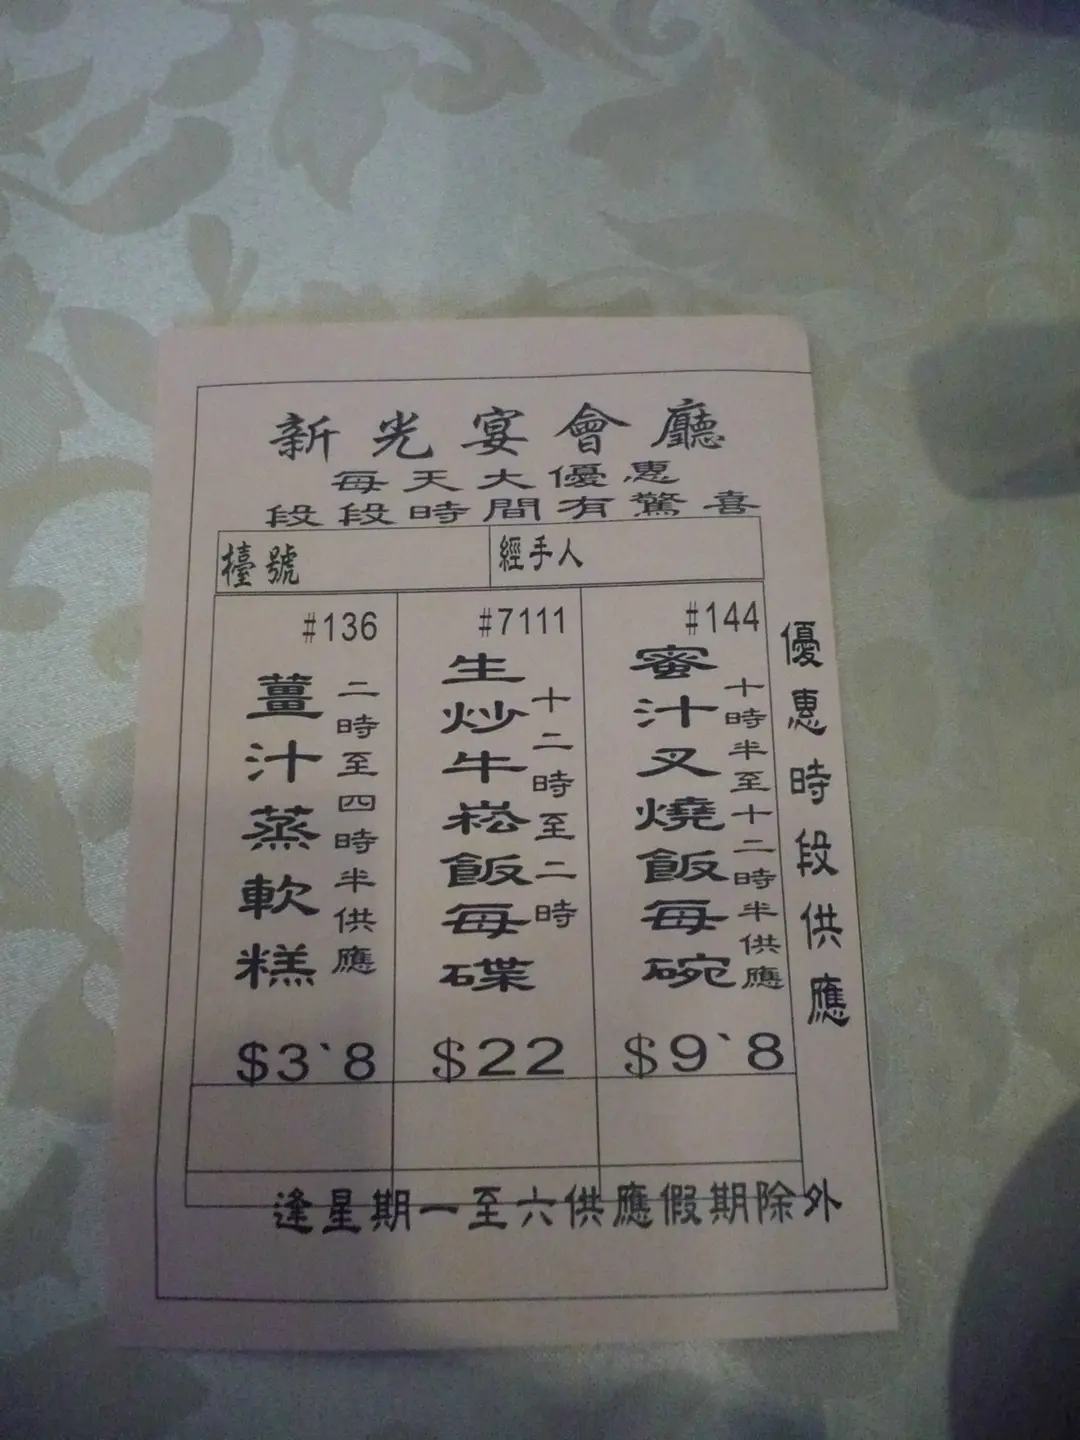 新光宴會廳
每天大優惠
段段時間有驚喜
檯號
經手人
優惠時段供應
#144
蜜汁叉燒飯每碗
十時半至十二時半供應
$9`8
#7111
生炒牛崧飯每碟
十二時至二時
$22
#136
薑汁蒸軟糕
二時至四時半供應
$3`8
逢星期一至六供應假期除外